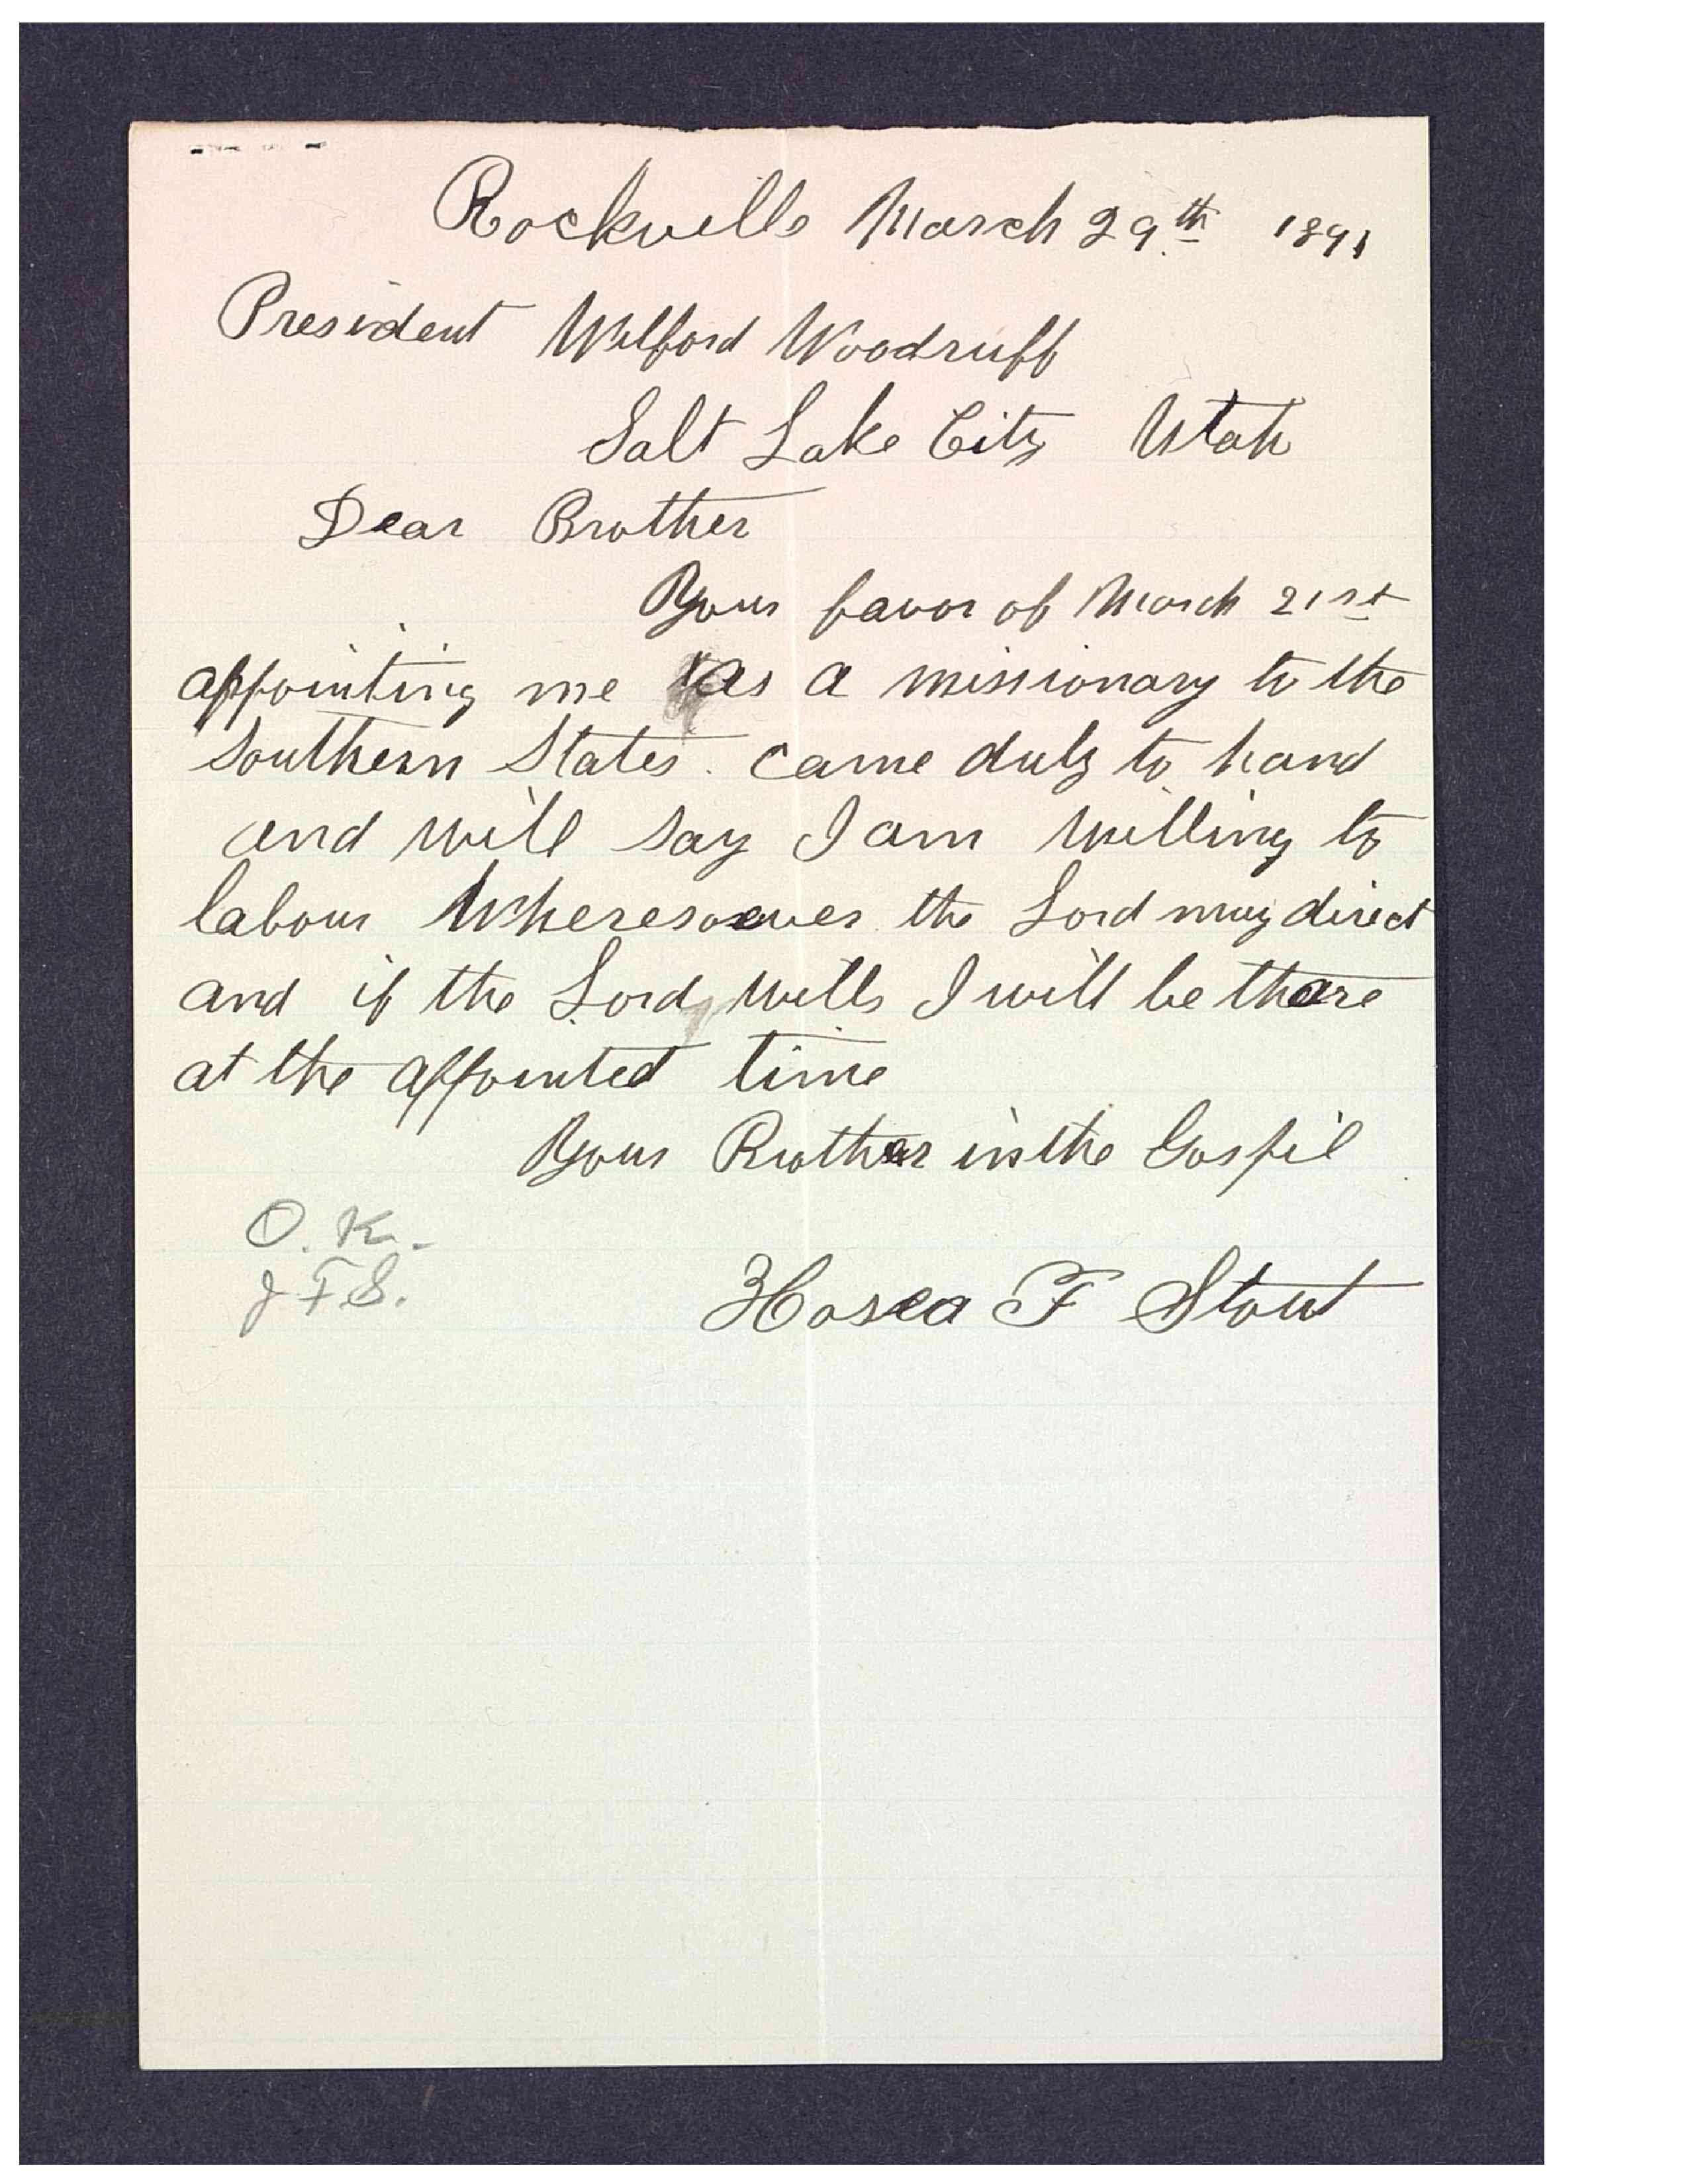 Rockville March 29th 1891
President Wilford Woodruff
Salt Lake City Utah
Dear Brother
Your favor of March 21st
appointing me as a missionary to the
Southern States. came duly to hand
and will say I am willing to
labour Wheresoever the Lord may direct
and if the Lord wills I will be there
at the appointed time
Your Brother in the Gospil
O. K.
J F S.
Hosea F Stout